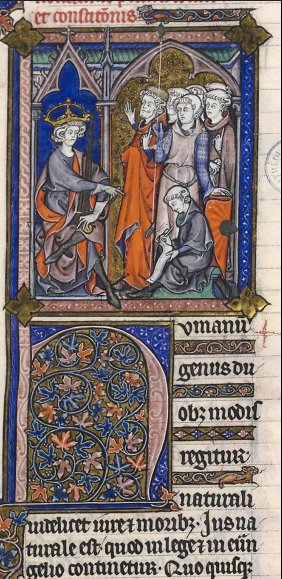 et constitonis
Humanū
genus du
obꝫ modis
regitur
naturali
uidelicet iure ⁊ moribꝫ. Jus na
turale est quod in lege ⁊ in euā
gelio continetur. Quo quisqꝫ